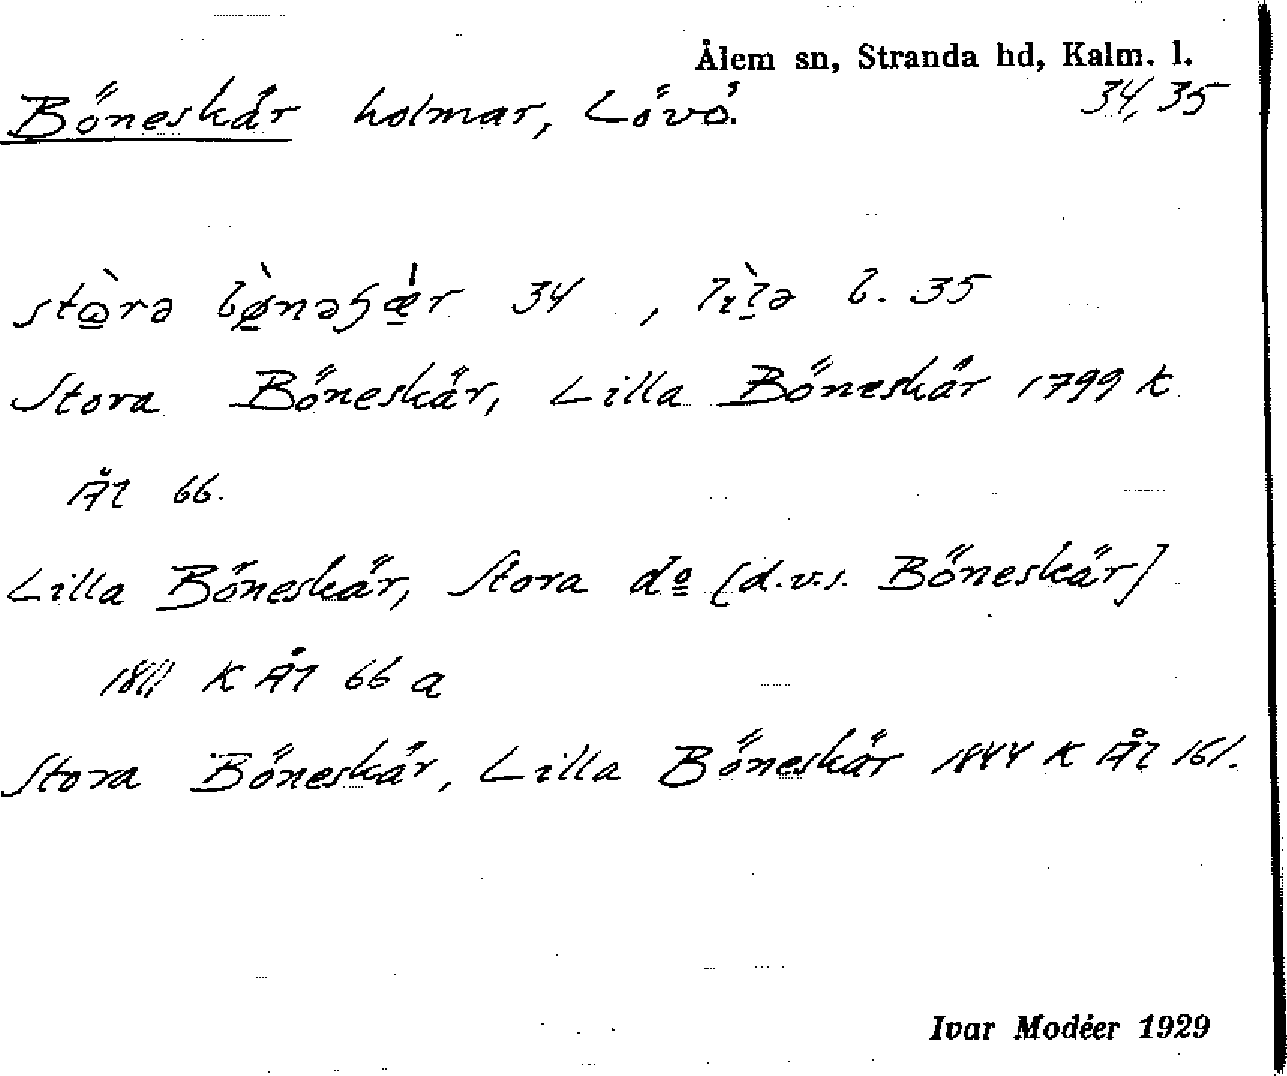 Ålem sn, Stranda hd, Kalm. l.
Böneskär holmar, Lövö. 34, 35
34, l. 35
Stora Böneskär, Lilla Böneskär 1799 k
Ål 66.
Lilla Böneskär, Stora do [d.v.s. Böneskär]
1811 K Ål 66 a
Stora Böneskär, Lilla Böneskär 1844 K Ål 161.
Ivar Modéer 1929